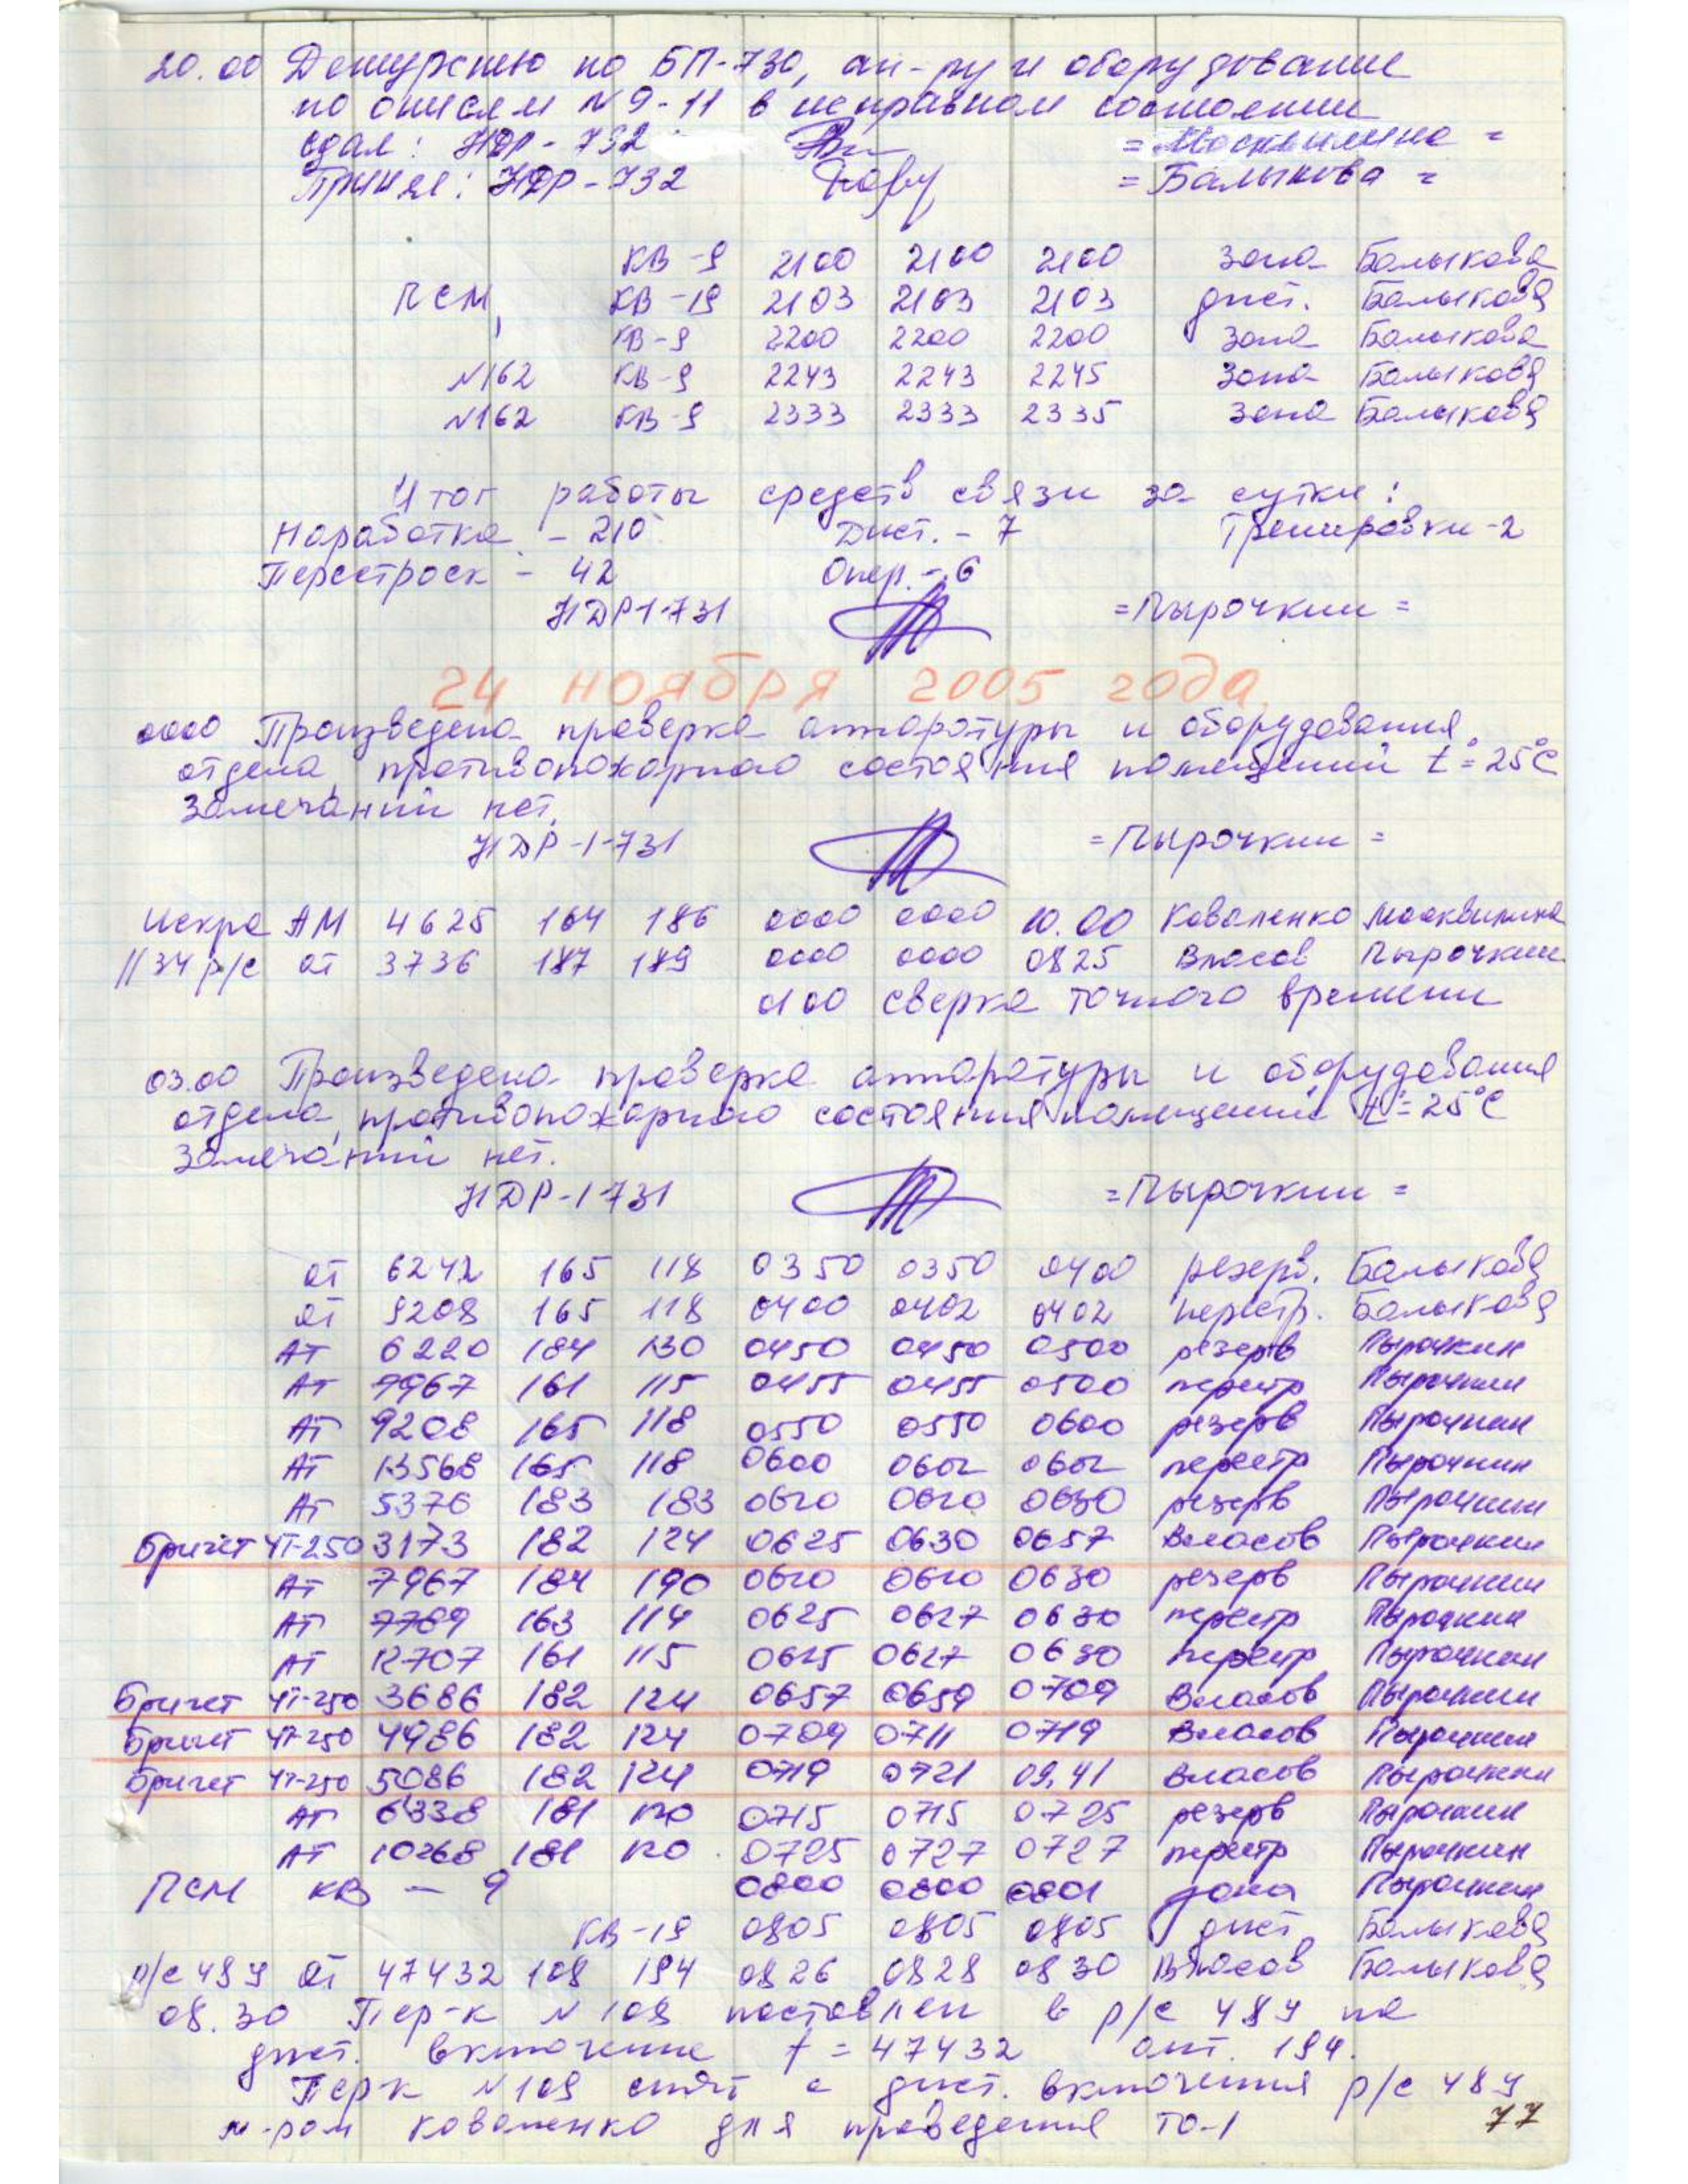 20.00 Дежурство по БП-730, ап-ру и оборудование
по описям N 9-11 в исправном состоянии
сдал: НДР-732 = Москвилина =
Принял: НДР-732 = Балыкова =
КВ-9 2100 2100 2100 зона Балыкова
ПСМ, КВ-19 2103 2103 2103 дист. Балыкова
КВ-9 2200 2200 2200 зона Балыкова
N162 КВ-9 2243 2243 2245 зона Балыкова
N162 КВ-9 2333 2333 2335 зона Балыкова
Итог работы средств связи за сутки:
Наработка - 210 Дист. - 7 Тренировки-2
Перестроек - 42 Опер. - 6
НДР-1-731 =Пырочкин=
24 ноября 2005 года
0000 Произведена проверка аппаратуры и оборудования
отдела, противопожарного состояния помещений t°=25°C
Замечаний нет.
НДР-1-731 =Пырочкин=
Искра АМ 4625 164 186 0000 0000 10.00 Коваленко Москвилина
1134 р/с АТ 3736 187 189 0000 0000 0825 Власов Пырочкин
0100 сверка точного времени
03.00 Произведена проверка аппаратуры и оборудования
отдела, противопожарного состояния помещений t°=25°C
Замечаний нет.
НДР-1-731 =Пырочкин=
АТ 6242 165 118 0350 0350 0400 резерв. Балыкова
АТ 9208 165 118 0400 0402 0402 перестр. Балыкова
АТ 6220 184 130 0450 0450 0500 резерв Пырочкин
АТ 7967 161 115 0455 0455 0500 перестр Пырочкин
АТ 9208 165 118 0550 0550 0600 резерв Пырочкин
АТ 13568 165 118 0600 0602 0602 перестр Пырочкин
АТ 5376 183 183 0620 0620 0630 резерв Пырочкин
Бригет ЧТ-250 3173 182 124 0625 0630 0657 Власов Пырочкин
АТ 7967 184 190 0620 0620 0630 резерв Пырочкин
АТ 7789 163 114 0625 0627 0630 перестр Пырочкин
АТ 12707 161 115 0625 0627 0630 перестр Пырочкин
Бригет ЧТ-250 3686 182 124 0657 0659 0709 Власов Пырочкин
Бригет ЧТ-250 4986 182 124 0709 0711 0719 Власов Пырочкин
Бригет ЧТ-250 5086 182 124 0719 0721 09,41 Власов Пырочкин
АТ 6338 181 120 0715 0715 0725 резерв Пырочкин
АТ 10268 181 120 0725 0727 0727 перестр Пырочкин
ПСМ КВ - 9 0800 0800 0801 зона Пырочкин
КВ-19 0805 0805 0805 дист. Балыкова
р/с 489 АТ 47432 108 194 0826 0828 0830 Власов Балыкова
08.30 Пер-к N 108 поставлен в р/с 489 на
дист. включение f = 47432 ант. 194.
Пер-к N109 снят с дист. включения р/с 489
м-ром Коваленко для проведения ТО-1
77